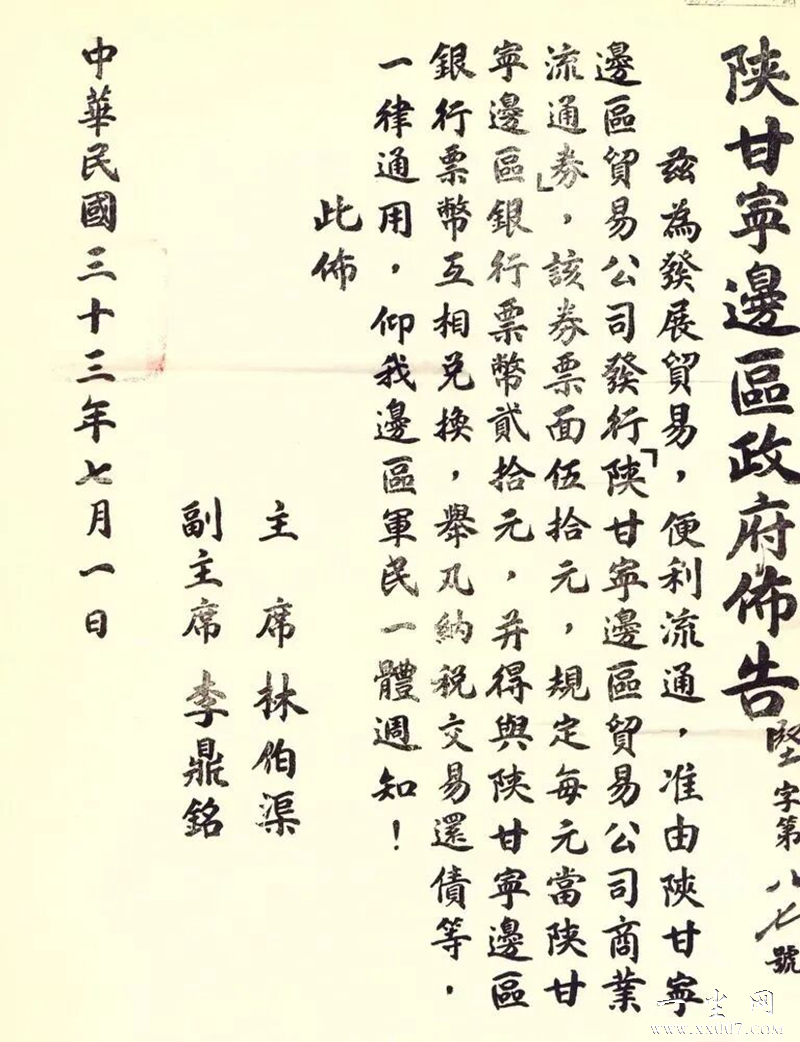 陝甘寧邊區政府佈告
堅字第八七號
茲為發展貿易，便利流通，准由陝甘寧
邊區貿易公司發行「陝甘寧邊區貿易公司商業
流通券」，該券票面伍拾元，規定每元當陝甘
寧邊區銀行票幣貳拾元，并得與陝甘寧邊區
銀行票幣互相兌換，舉凡納税交易還債等，
一律通用，仰我邊區軍民一體週知！
此佈
主席 林伯渠
副主席 李鼎銘
中華民國三十三年七月一日
www.xxdd7.com